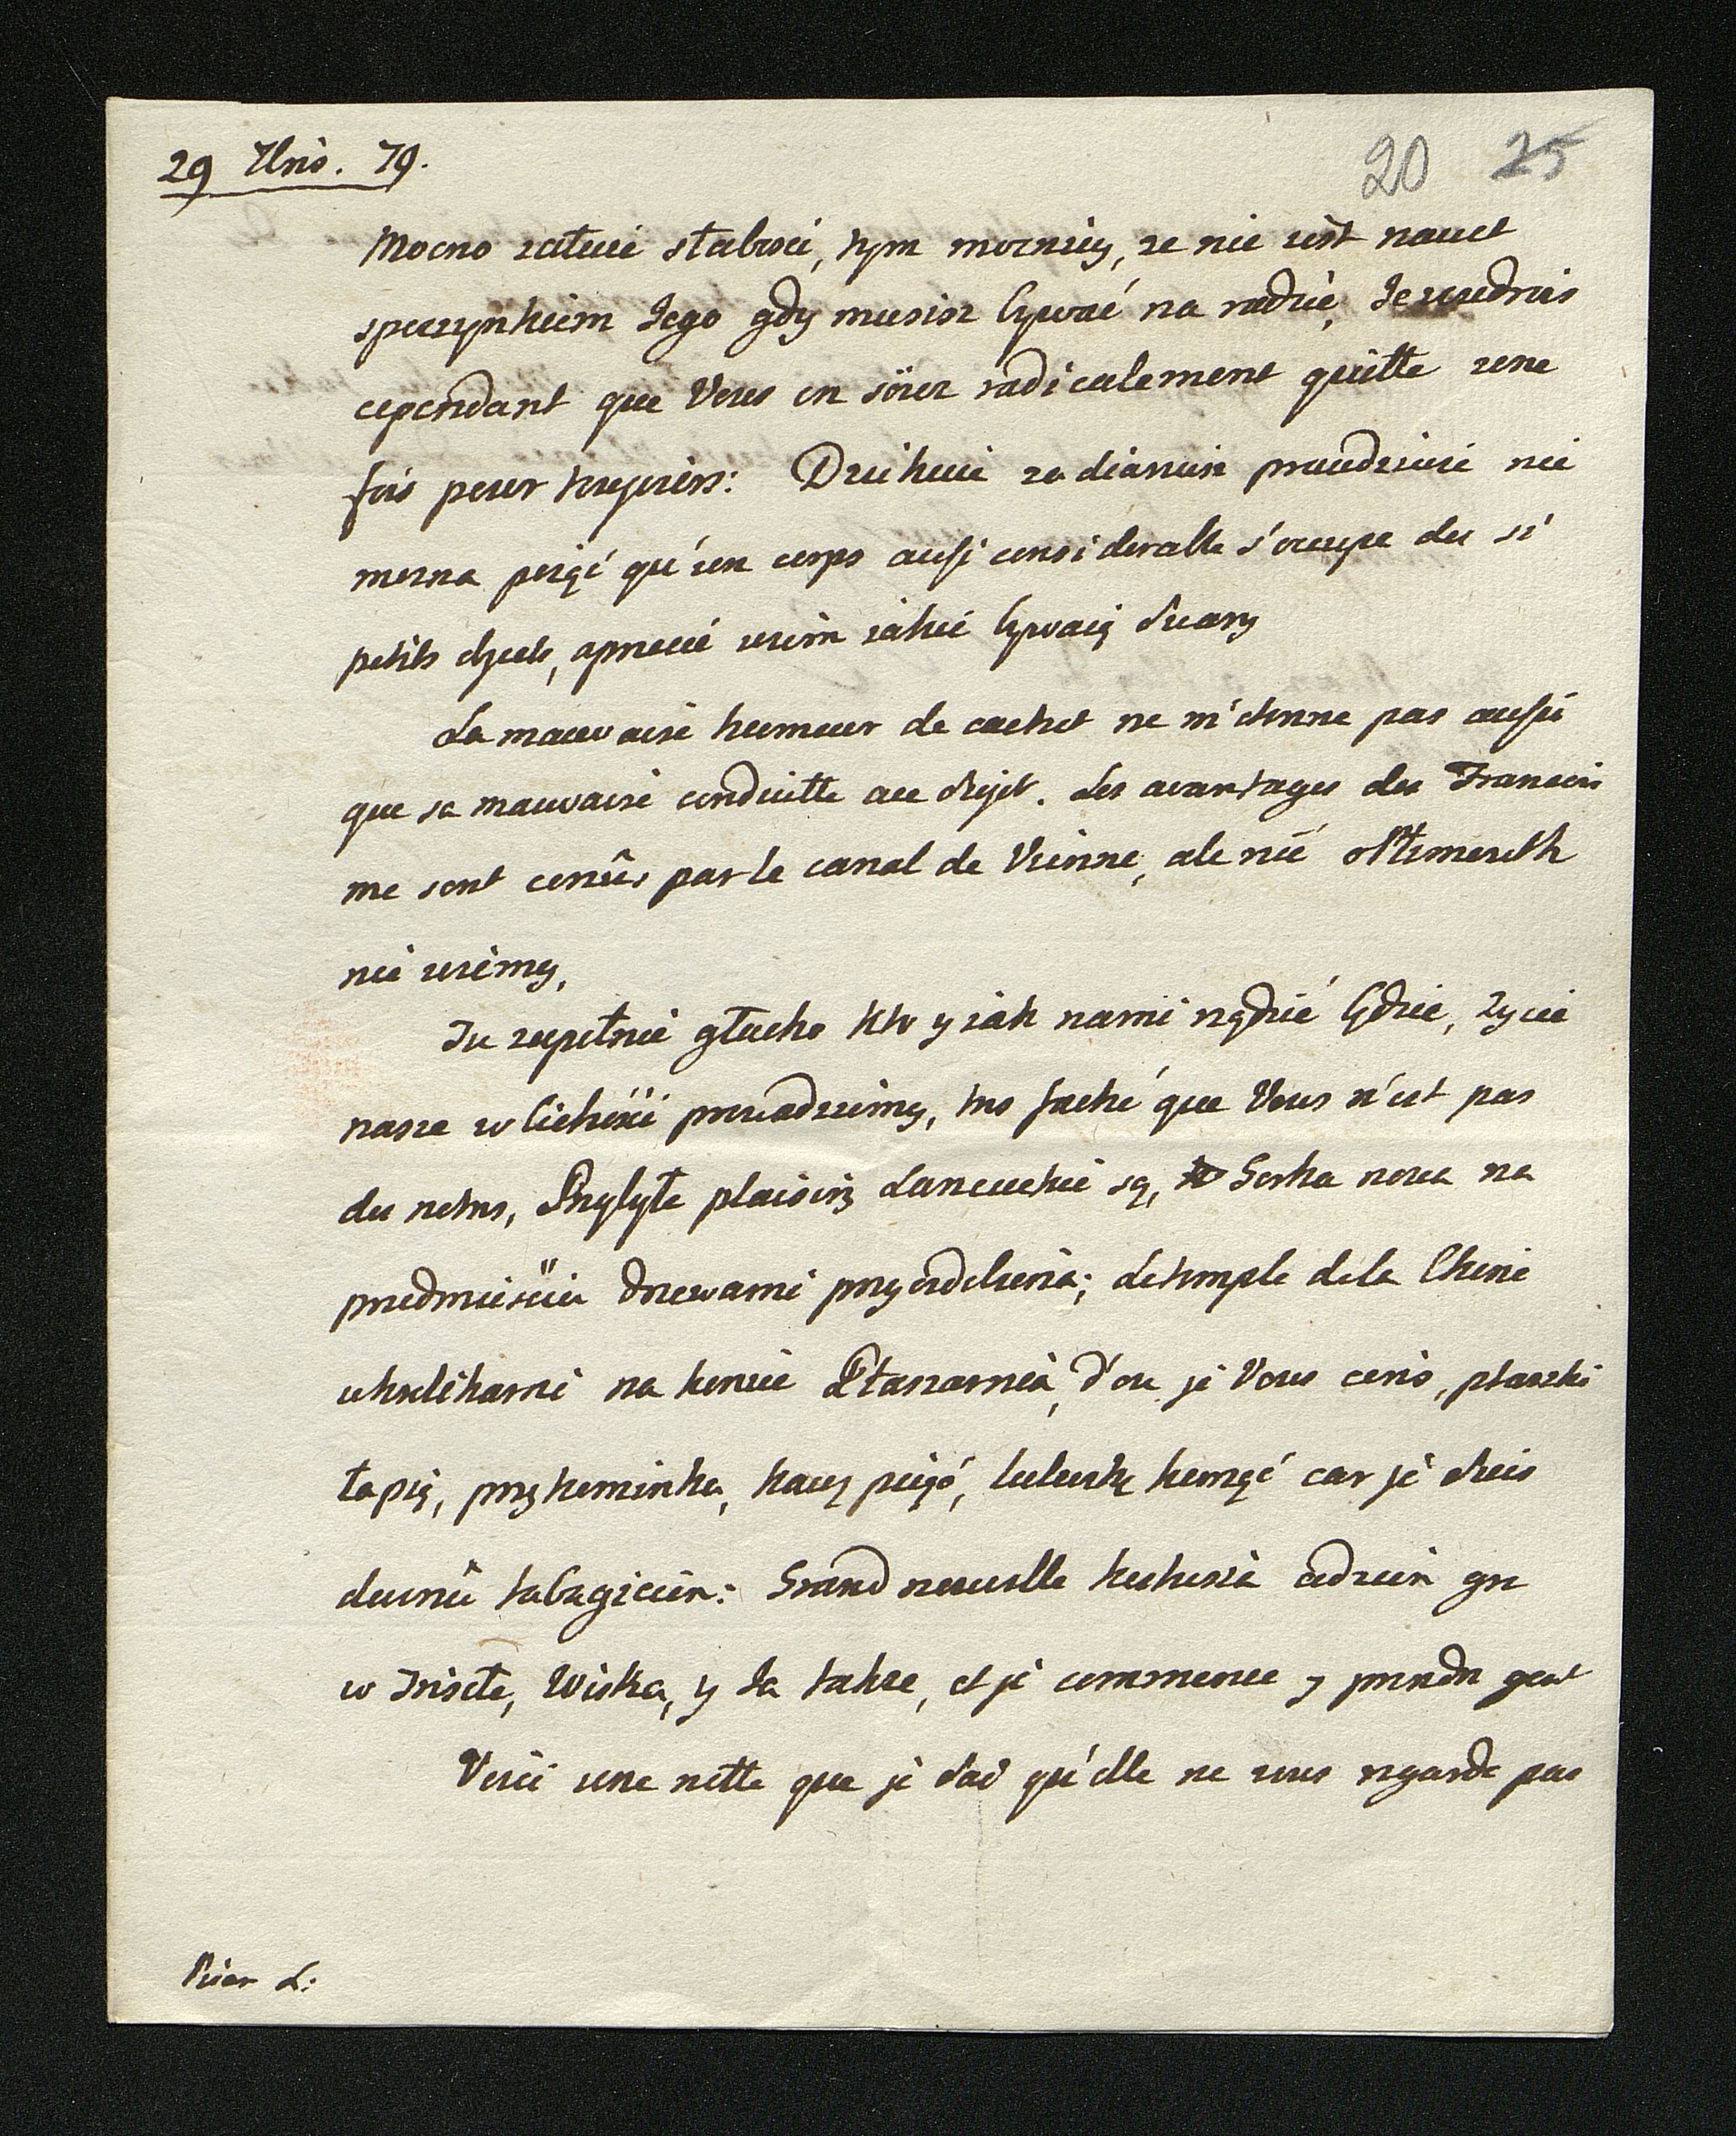 29 7bris. 79.
20 25
Mocno załuie słabosci, tym mocniey, ze nie iest nawet
spoczynkiem Jego gdy musisz bywać na radzie, Je voudrois
cependant que Vous en soïez radicalement quitte une
fois pour toujours: Dziekuie za diariusz prawdziwie nie
mozna poiąć qu'un corps aussi considerable s'occupe de si
petits objects, aprecié wiem iakie bywaią
La mauvaise humeur de cachet ne m'etonne pas aussi
que sa mauvaise conduitte au sujet. Les avantages des Francois
me sont conûs par le canal de Vienne, ale nic o
nie wiemy,
Tu zupełnie głucho kto y iak nami rządzić będzie, zycie
nasze w cichosci prowadziemy, tres faché que Vous n'est pas
du notres, Przybyłe plaisirą Lancuckie są, Gorka nowa na
przedmiesciu drzewami przyozdobiona; Le temple de la Chine
w krolikarni na koncu Ptaszarnia, d'ou je Vous ecris, ptaszki
łapią, przy kominku, kawę piiąc, luleczkę kurząc car je suis
devenû tabagicien: Grand nouvelle kuchnia gra
w Triseta, Wiska, y Ja takze, et je commence y prendre gout
Voici une notte que je sai qu'elle ne vous regarde pas
Pisar L: